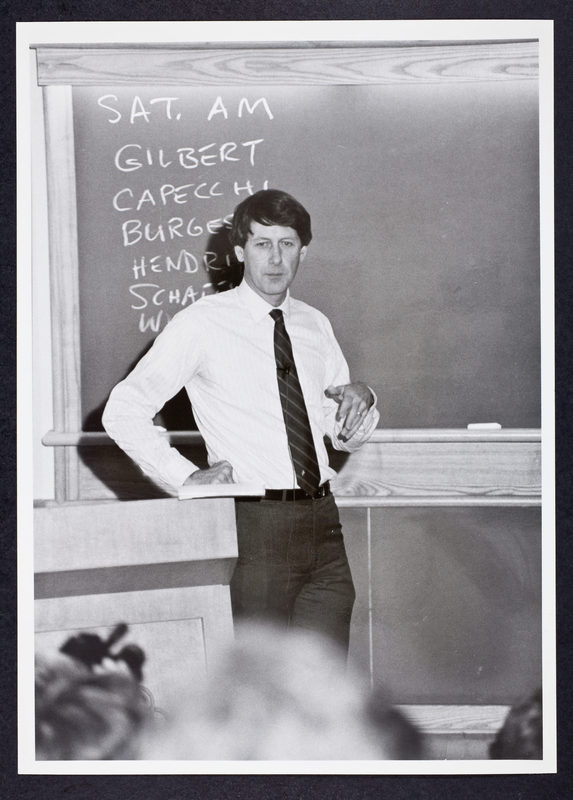 SAT. AM
GILBERT
CAPECCHI
BURGES
HENDRI